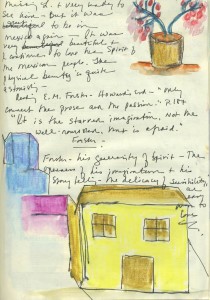 missing it & very ready to
see home - But it was
to be in
mexico again - It was
very beautiful &
I continue to love the spirit of
the mexican people. The
physical beauty is quite

Reading E.M. Forster Howards End - "only
connect the prose and the passion." P.187
"It is the starved imagination, not the
well-nourished, that is afraid."
Forster -
Forster - his generosity of spirit - The
of his imagination & his
- the delicacy of sensibility,
as
from
to
love